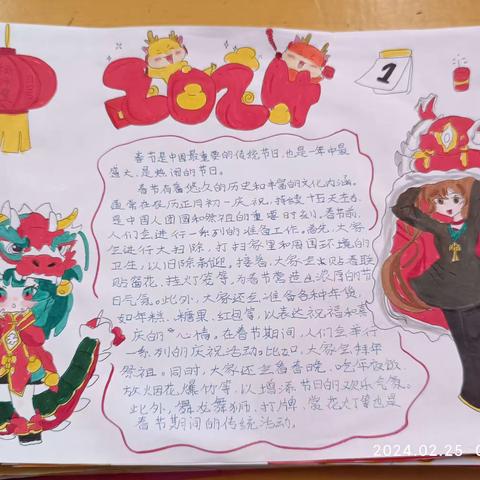 2024
1
春节是中国最重要的传统节日,也是一年中最
盛大、最热闹的节日。
春节有着悠久的历史和丰富的文化内涵。
通常在农历正月初一庆祝,持续十五天左右,
是中国人团圆和祭祖的重要时刻。春节前,
人们会进行一系列的准备工作。首先,大家
会进行大扫除,打扫家里和周围环境的
卫生,以旧除新迎。接着,大家会贴春联
贴窗花、挂灯笼等,为春节营造出浓厚的节
日气氛。此外,大家还会准备各种年货,
如年糕、糖果、红包等,以表达祝福和喜
庆的心情。在春节期间,人们会举行
一系列的庆祝活动。比如,大家会拜年
祭祖。同时,大家还会看春晚、吃年夜饭、
放烟花爆竹等,以增添节日的欢乐气氛。
此外,舞龙舞狮、打牌、赏花灯等也是
春节期间的传统活动。
2024.02.25